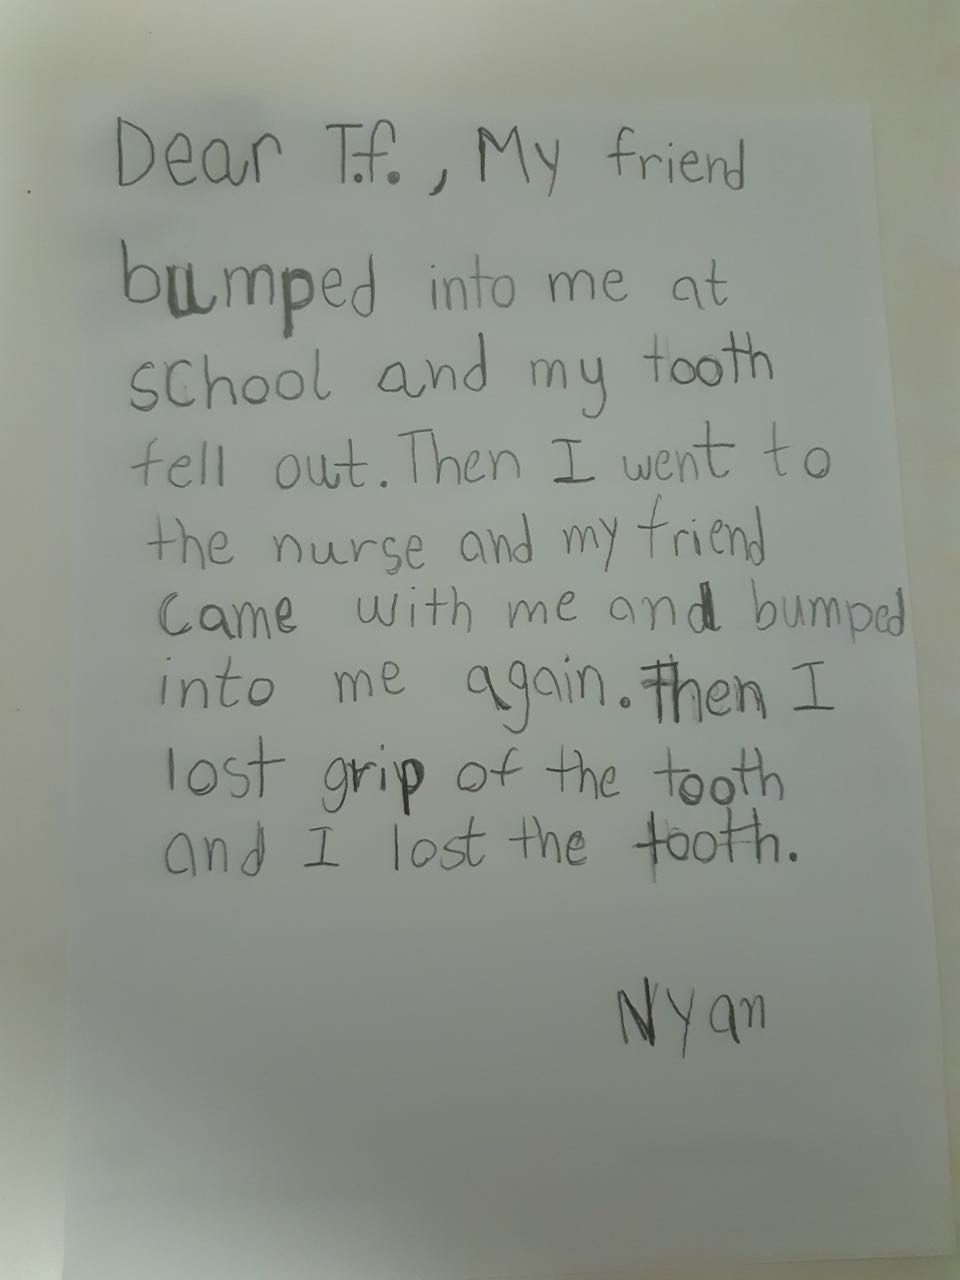 Dear T.f., My friend
bumped into me at
school and my tooth
fell out. Then I went to
the nurse and my friend
came with me and bumped
into me again. Then I
lost grip of the tooth
and I lost the tooth.
Nyan